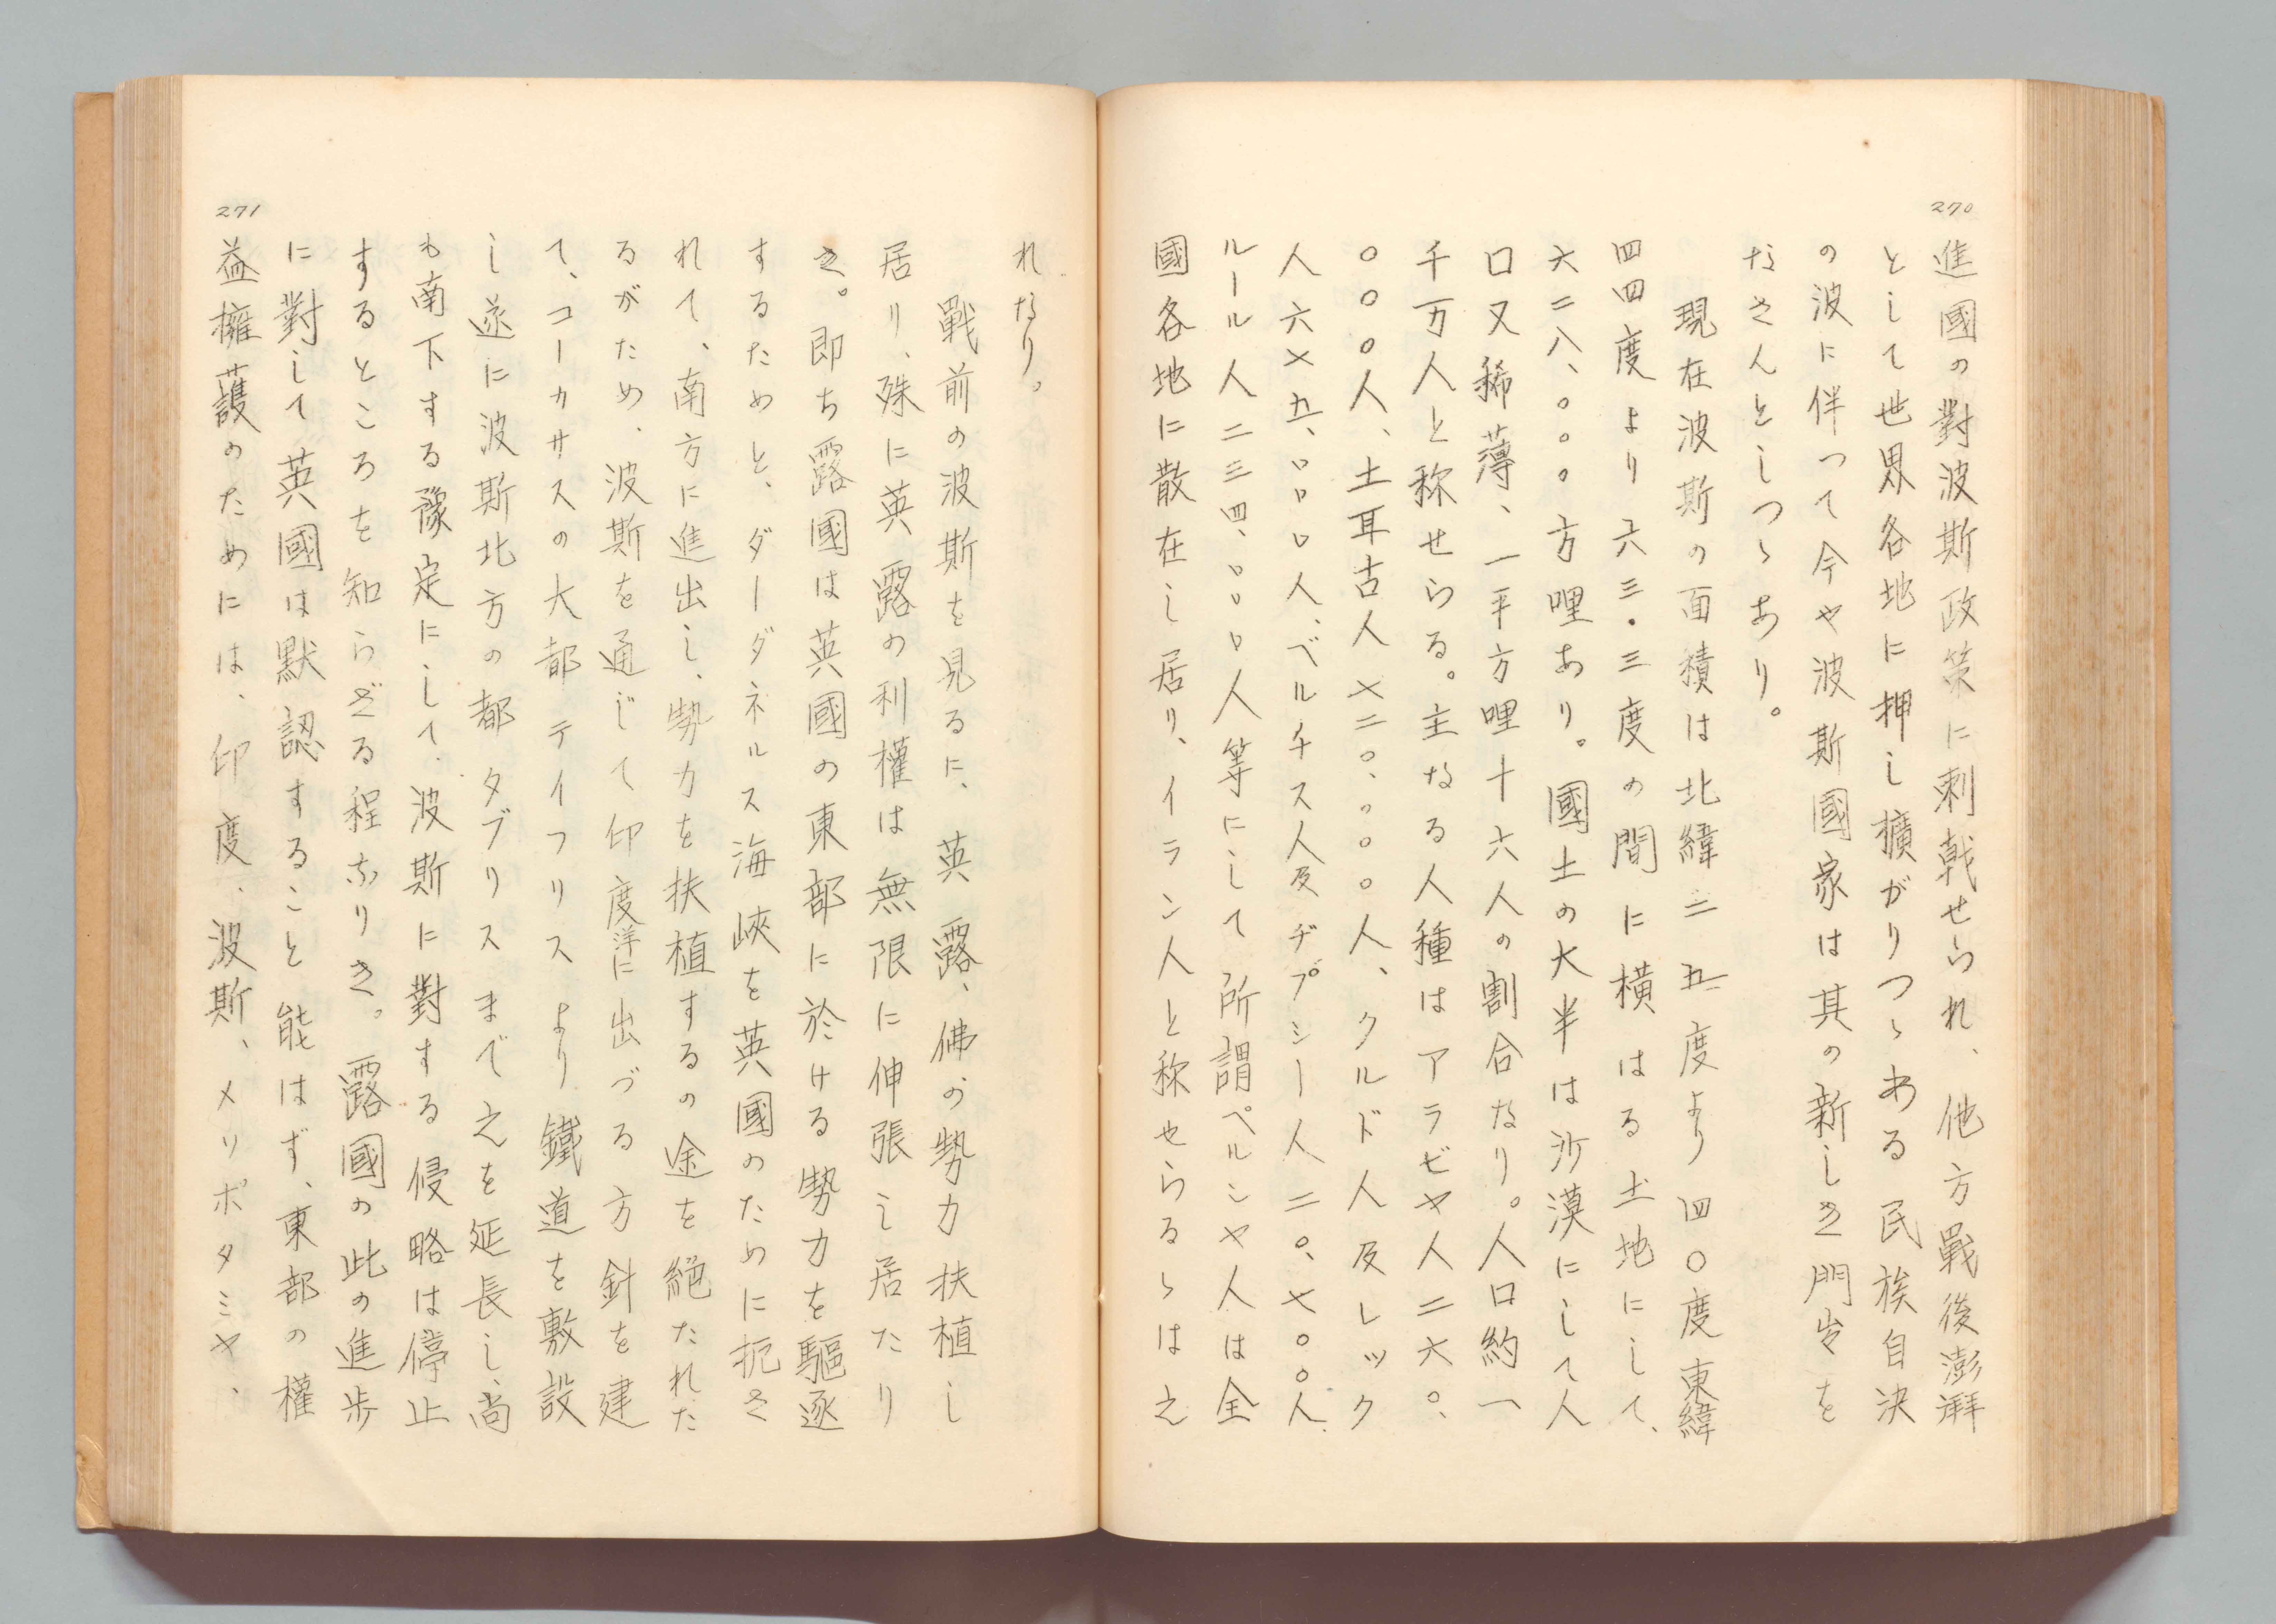 270
進國の對波斯政策に刺戟せられ、他方戰後澎湃
として世界各地に押し擴がりつゝある民族自決
の波に伴つて今や波斯國家は其の新しき門出を
なさんとしつゝあり。
現在波斯の面積は北緯二五度より四〇度東緯
四四度より六三・三度の間に横はる土地にして、
六二八、〇〇〇方哩あり。國土の大半は沙漠にして人
口又稀薄、一平方哩十六人の割合なり。人口約一
千万人と称せらる。主なる人種はアラビヤ人二六〇、
〇〇〇人、土耳古人七二〇、〇〇〇人、クルド人及レック
人六七五、〇〇〇人、ベルチス人及ヂプシー人二〇、七〇〇人、
ルール人二三四、〇〇〇人等にして所謂ペルシヤ人は全
國各地に散在し居り、イラン人と称せらるゝは之
271
れなり。
戰前の波斯を見るに、英露、佛の勢力扶植し
居り、殊に英露の利權は無限に伸張し居たり
き。即ち露國は英國の東部に於ける勢力を驅逐
するためと、ダーダネルス海峽を英國のために扼さ
れて、南方に進出し、勢力を扶植するの途を絕たれた
るがため、波斯を通じて印度洋に出づる方針を建
て、コーカサスの大都テイフリスより鐵道を敷設
し遂に波斯北方の都タブリスまで之を延長し、尚
も南下する豫定にして、波斯に對する侵略は停止
するところを知らざる程なりき。露國の此の進步
に對して英國は默認すること能はず、東部の權
益擁護のためには、印度、波斯、メソポタミヤ、